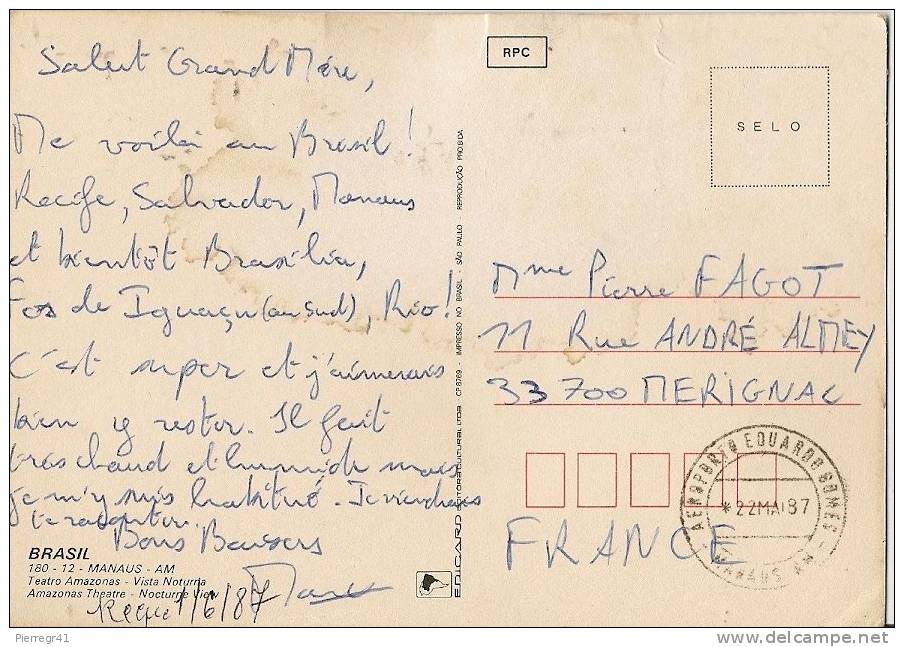 Salut Grand Mère,
Me voilà au Brésil !
Recife, Salvador, Manaus
et bientôt Brasilia,
Fos de Iguaçu (au sud), Rio !
C'est super et j'aimerais
bien y rester. Il fait
très chaud et humide mais
je m'y suis habitué. Je viendrais
te raconter.
Bons Baisers
BRASIL
180 - 12 - MANAUS - AM
Teatro Amazonas - Vista Noturna
Amazonas Theatre - Nocturne View
Reçue 1/6/87
EDICARD EDITORA CULTURAL LTDA - CP 8769 - IMPRESSO NO BRASIL - SÃO PAULO - REPRODUÇÃO PROIBIDA
RPC
SELO
Mme Pierre FAGOT
11 Rue ANDRÉ ALMEY
33700 MERIGNAC
FRANCE
AEROPORTO EDUARDO GOMES - AM
*22MAI87
MANAUS
Pierregr41
delcampe.net